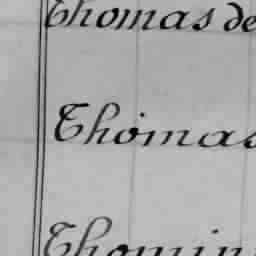 Thomas de
Thomas
Thomin